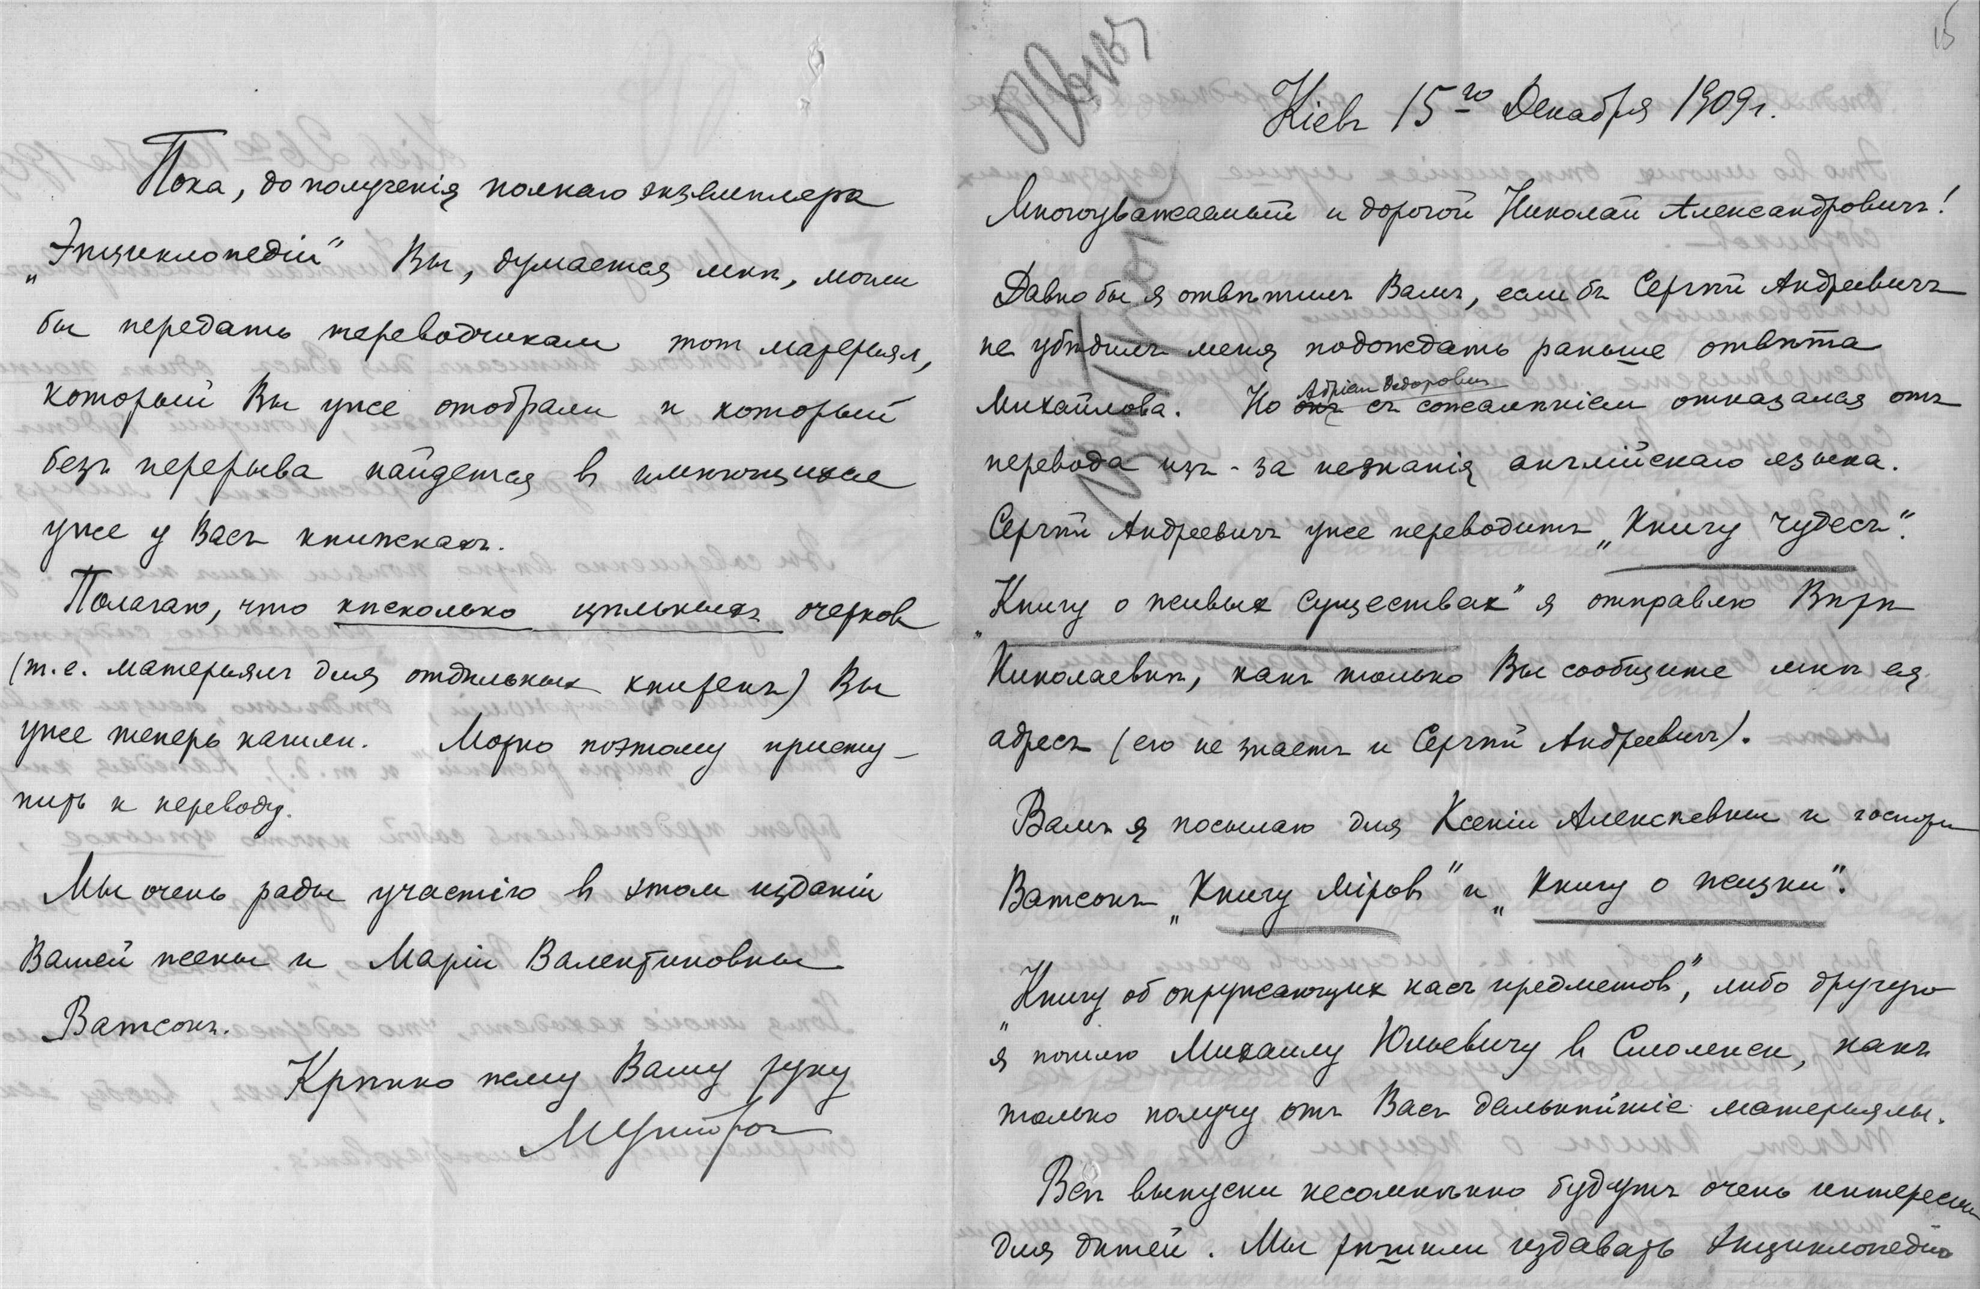 15
Кіевъ 15го Декабря 1909 г.
Многоуважаемый и дорогой Николай Александровичъ!
Давно бы я отвѣтилъ Вамъ, если бъ Сергѣй Андреевичъ
не убѣдилъ меня подождать раньше отвѣта
Адріан Федорович
Михайлова. Но онъ съ сожалѣніем отказался отъ
перевода изъ-за незнанія англійскаго языка.
Сергѣй Андреевичъ уже переводитъ „Книгу чудесъ“.
„Книгу о живых существах“ я отправлю Вѣрѣ
Николаевнѣ, какъ только Вы сообщите мнѣ ея
адресъ (его не знаетъ и Сергѣй Андреевичъ).
Вамъ я посылаю для Ксеніи Алексѣевны и госпожи
Ватсонъ „Книгу міров“ и „Книгу о жизни“.
„Книгу об окружающих насъ предметов“, либо другую
я пошлю Михаилу Юльевичу в Смоленск, какъ
только получу отъ Васъ дальнѣйшіе матерьялы.
Всѣ выпуски несомнѣнно будутъ очень интересны
для дѣтей. Мы рѣшили издавать Энциклопедію
Пока, до полученія полнаго экземпляра
„Энциклопедіи“ Вы, думается мнѣ, могли
бы передать переводчикам тот матерьял,
который Вы уже отобрали и который
безъ перерыва найдется в имѣющихся
уже у Васъ книжкахъ.
Полагаю, что нѣсколько цѣльныхъ очерков
(т.е. матерьялъ для отдѣльных книжекъ) Вы
уже теперь нашли. Можно поэтому присту-
пить к переводу.
Мы очень рады участію в этом изданіи
Вашей жены и Маріи Валентиновны
Ватсонъ.
Крѣпко жму Вашу руку